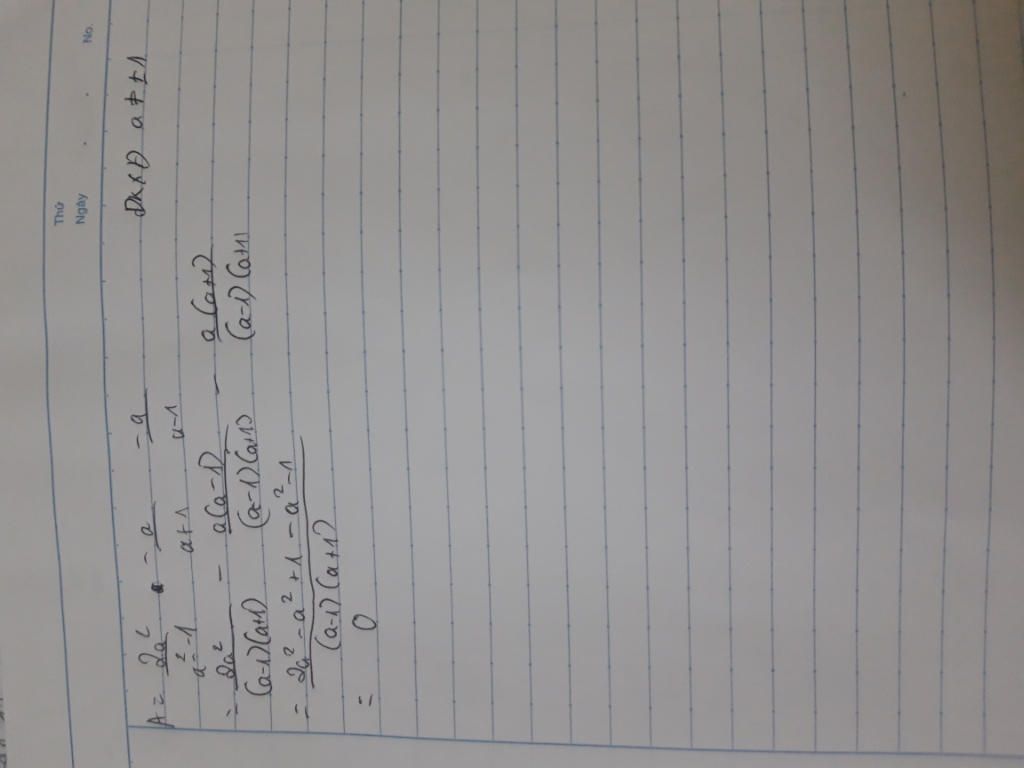 Thứ
Ngày . . No.
A = 2a²/a²-1 - a/a+1 - a/a-1 ĐKXĐ a ≠ ±1
= 2a²/(a-1)(a+1) - a(a-1)/(a-1)(a+1) - a(a+1)/(a-1)(a+1)
= 2a²-a²+1-a²-1/(a-1)(a+1)
= 0